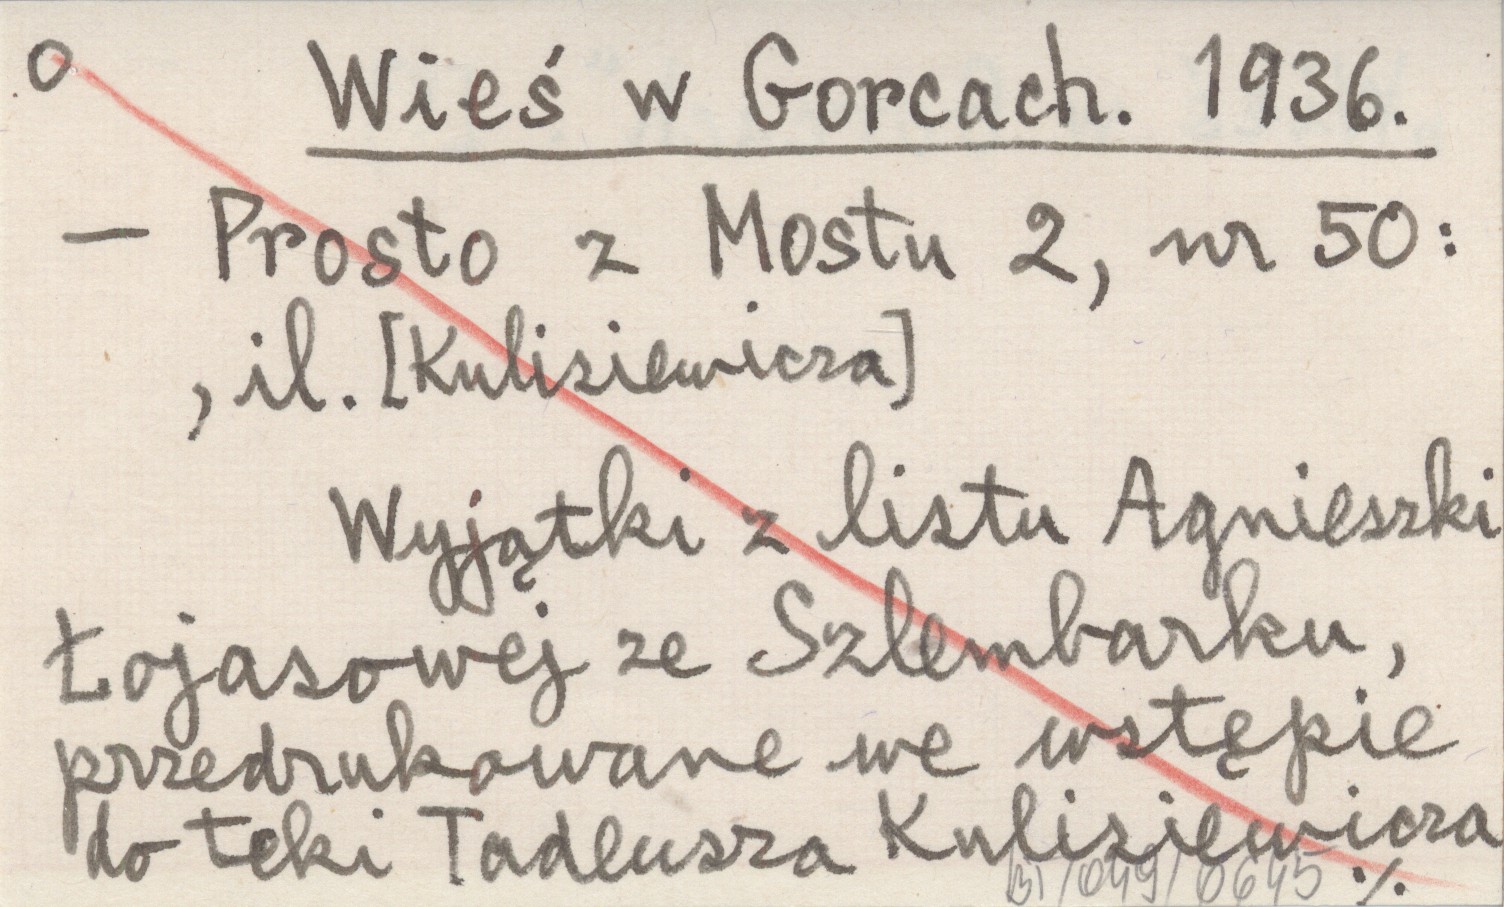 o Wieś w Gorcach. 1936.
— Prosto z Mostu 2, nr 50:
, il. [Kulisiewicza]
Wyjątki z listu Agnieszki
Łojasowej ze Szlembarku,
przedrukowane we wstępie
do teki Tadeusza Kulisiewicza
BI/049/0645 ./.